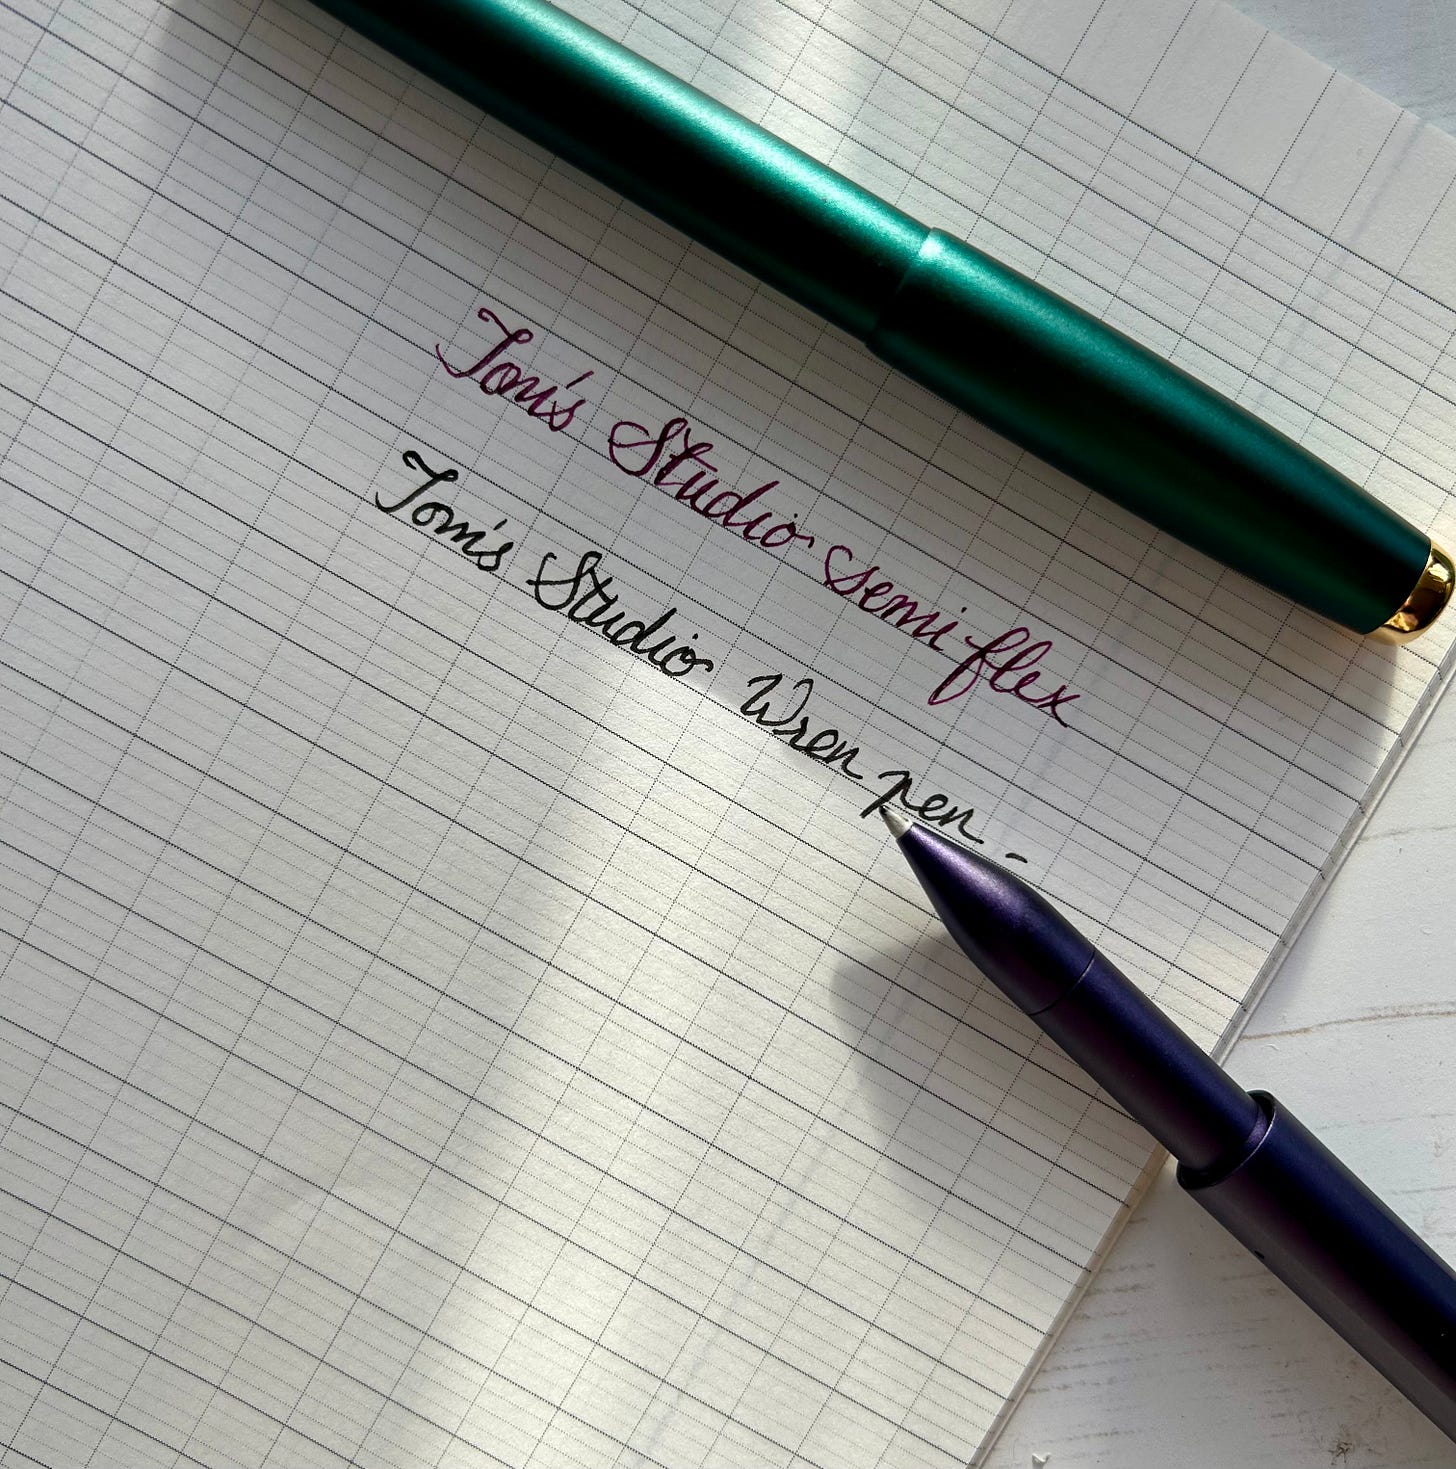 Tom's Studio semi-flex
Tom's Studio Wren pen -